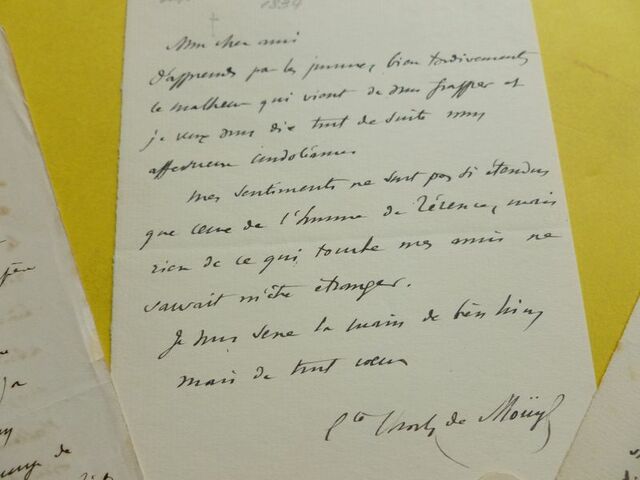 1834
Mon cher ami
J'apprends par les journaux, bien tardivement,
le malheur qui vient de vous frapper et
je veux vous dire tout de suite mes
affectueuses condoléances
Mes sentiments ne sont pas si étendus
que ceux de l'homme de Térence, mais
rien de ce qui touche mes amis ne
saurait m'être étranger.
Je vous serre la main de bien loin,
mais de tout cœur
Cte Charles de Moüy